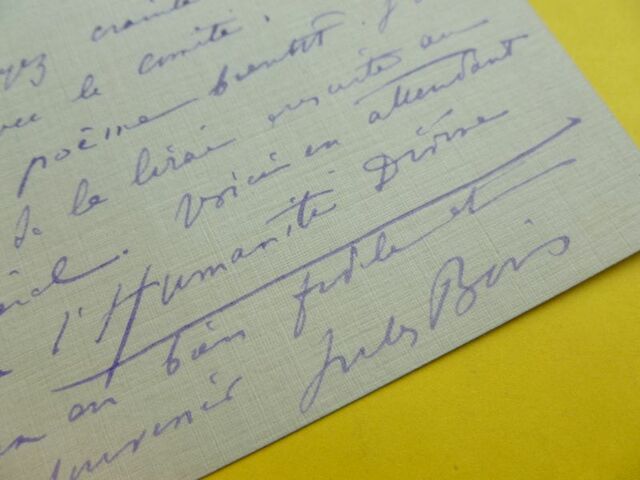 crainte
le comité.
poème bientôt.
de la lirai ensuite au
. Voici en attendant
l'Humanité Divine
un bien fidèle et
souvenir Jules Bois